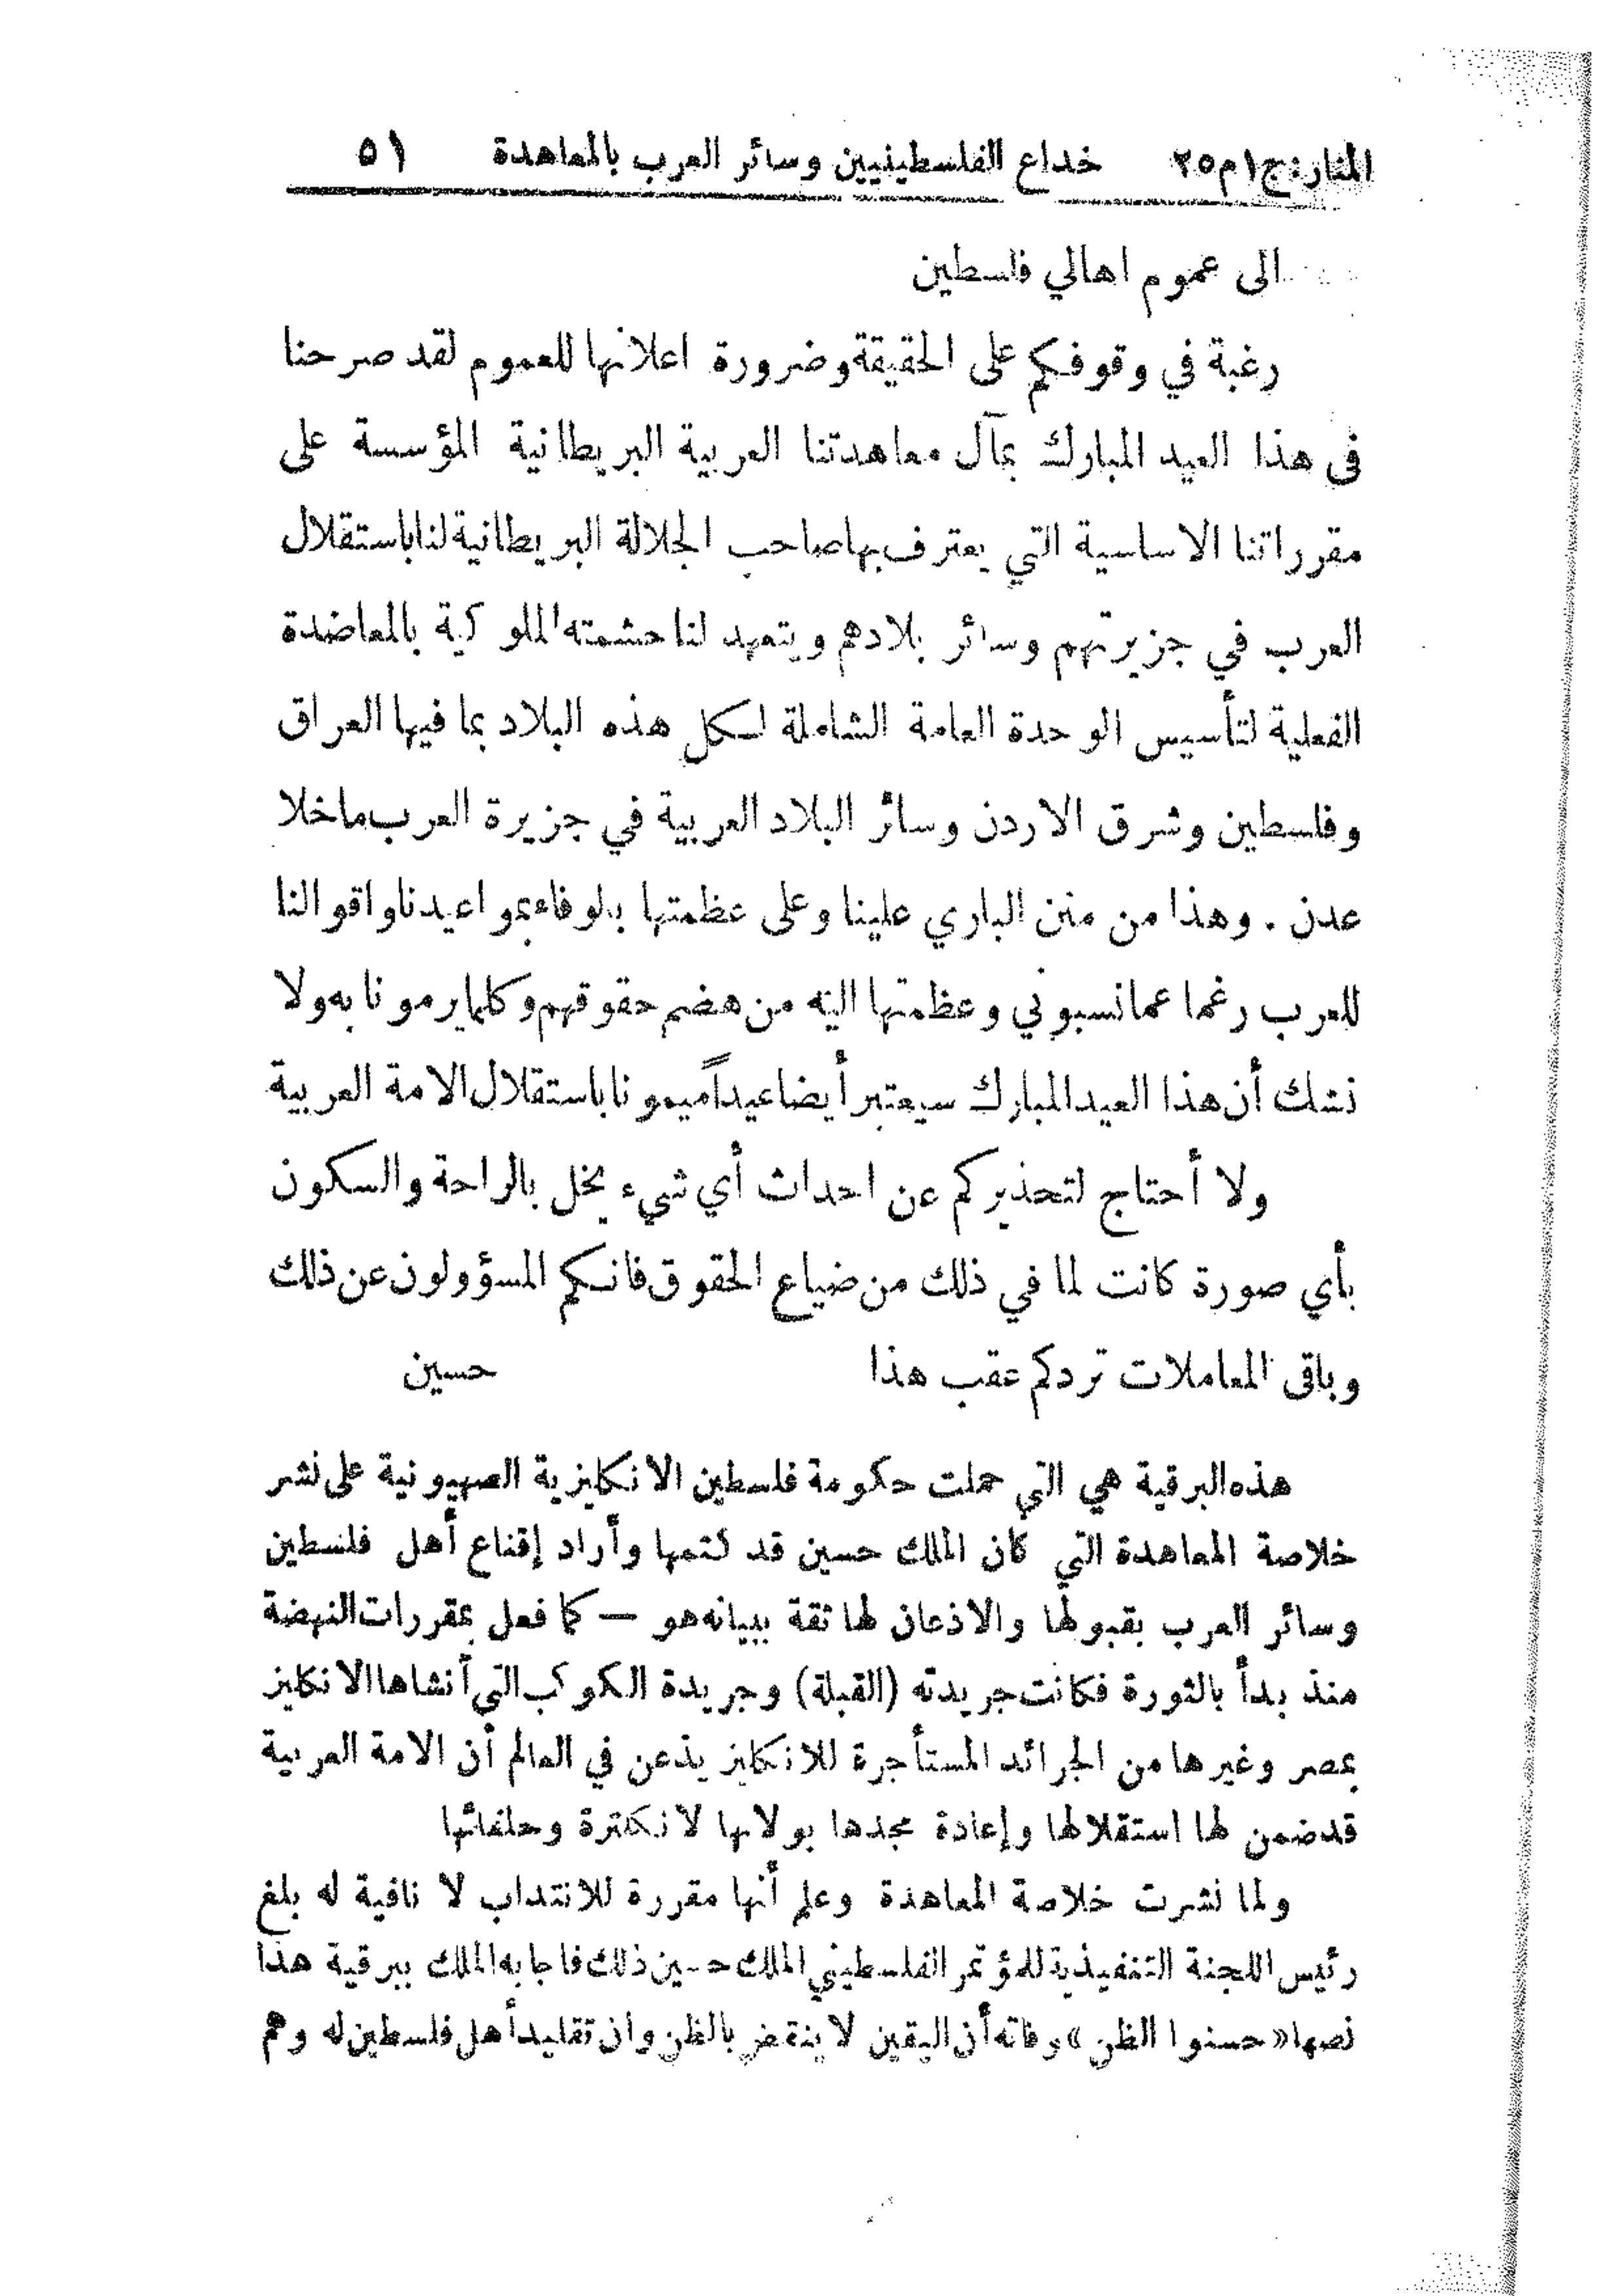 المنار:ج١م٢٥ خداع الفلسطينيين وسائر العرب بالمعاهدة ٥١
الى عموم اهالي فلسطين
رغبة في وقوفكم على الحقيقة وضرورة اعلانها للعموم لقد صرحنا
في هذا العيد المبارك بمآل معاهدتنا العربية البريطانية المؤسسة على
مقرراتنا الاساسية التي يعترف بها صاحب الجلالة البريطانية لنا باستقلال
العرب في جزيرتهم وسائر بلادهم ويتعهد لنا حشمته الملوكية بالمعاضدة
الفعلية لتأسيس الوحدة العامة الشاملة لكل هذه البلاد بما فيها العراق
وفلسطين وشرق الاردن وسائر البلاد العربية في جزيرة العرب ماخلا
عدن . وهذا من منن الباري علينا وعلى عظمتها بالوفاء بمواعيدنا واقوالنا
للعرب رغما عما نسبوني وعظمتها اليه من هضم حقوقهم وكلما يرمونا به ولا
نشك أن هذا العيد المبارك سيعتبر أيضا عيداً ميمونا باستقلال الامة العربية
ولا أحتاج لتحذيركم عن احداث أي شيء يخل بالراحة والسكون
بأي صورة كانت لما في ذلك من ضياع الحقوق فانكم المسؤولون عن ذلك
وباقى المعاملات تردكم عقب هذا حسين
هذه البرقية هي التي حملت حكومة فلسطين الانكليزية الصهيونية على نشر
خلاصة المعاهدة التي كان الملك حسين قد كتمها وأراد إقناع أهل فلسطين
وسائر العرب بقبولها والاذعان لها ثقة ببيانه هو — كما فعل بمقررات النهضة
منذ بدأ بالثورة فكانت جريدته (القبلة) وجريدة الكوكب التي أنشاها الانكليز
بمصر وغيرها من الجرائد المستأجرة للانكليز يذعن في العالم أن الامة العربية
قد ضمن لها استقلالها وإعادة مجدها بولائها لانكلترة وحلفائها
ولما نشرت خلاصة المعاهدة وعلم أنها مقررة للانتداب لا نافية له بلغ
رئيس اللجنة التنفيذية للمؤتمر الفلسطيني الملك حسين ذلك فاجابه الملك ببرقية هذا
نصها «حسنوا الظن» وفاته أن اليقين لا ينقض بالظن وان تقليد أهل فلسطين له وهم